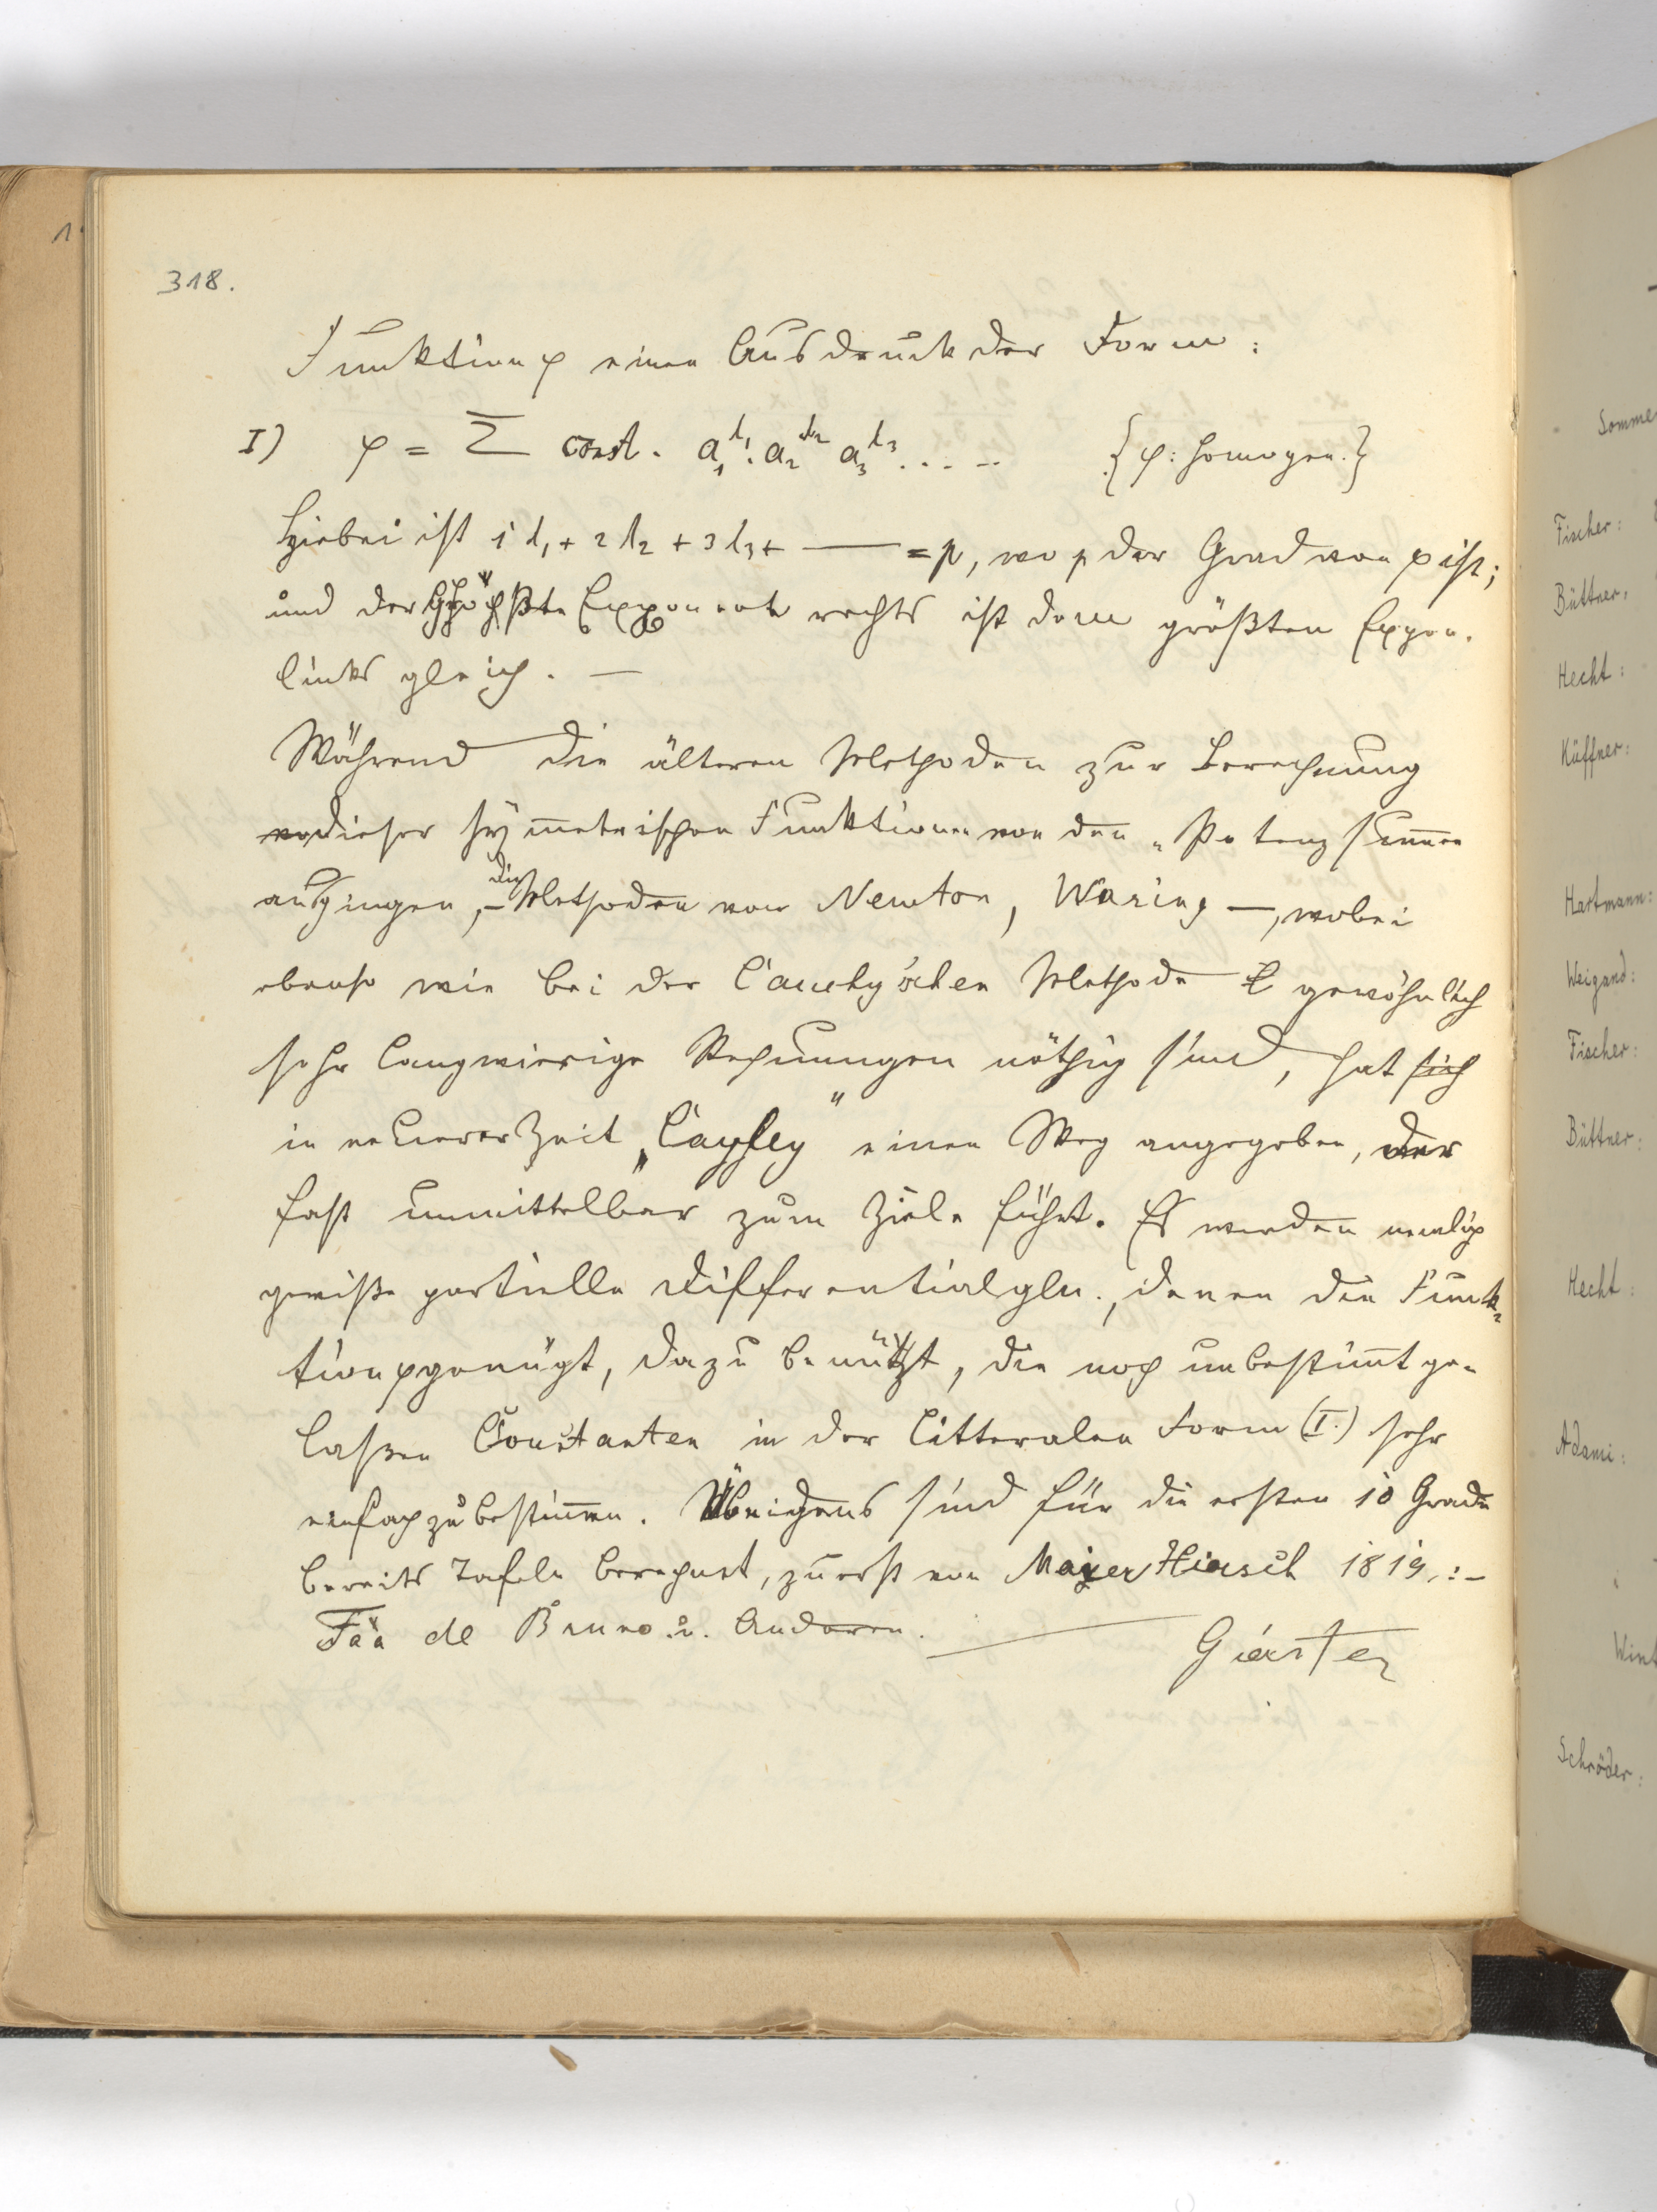 318.
Funktion φ einen Ausdruck der Form:
I) φ = Σ const. a₁^l₁. a₂^l₂ a₃^l₃ . . . . . {φ: homogen.}
Hiebei ist 1 l₁ + 2 l₂ + 3 l₃ + —— = p, wo p der Grad von φ ist;
und der höchste Exponent rechts ist dem größten Expon.
links gleich. —
Während die älteren Methoden zur Berechnung
dieser symmetrischen Funktionen von den „Potenzsummen
ausgingen, – die Methoden von Newton, Waring —, wobei
ebenso wie bei der Cauchy'schen Methode gewöhnlich
sehr langwierige Rechnungen nöthig sind, hat sich
in neuerer Zeit „Cayley" einen Weg angegeben, der
fast unmittelbar zum Ziele führt. Es werden nemlich
gewiße partielle Differentialgln., denen die Funk-
tion φ genügt, dazu benützt, die noch unbestimmt ge-
laßen Constanten in der litteralen Form (I.) sehr
einfach zu bestimmen. Übrigens sind für die ersten 10 Grade
bereits Tafeln berechnet, zuerst von Mayer Hirsch 1819, :-
Faà de Bruno u. Anderen.
Gierster
1
Somme
Fischer:
Büttner:
Hecht:
Küffner:
Hartmann:
Weigand:
Fischer:
Büttner:
Hecht:
Adami:
Wint
Schröder: